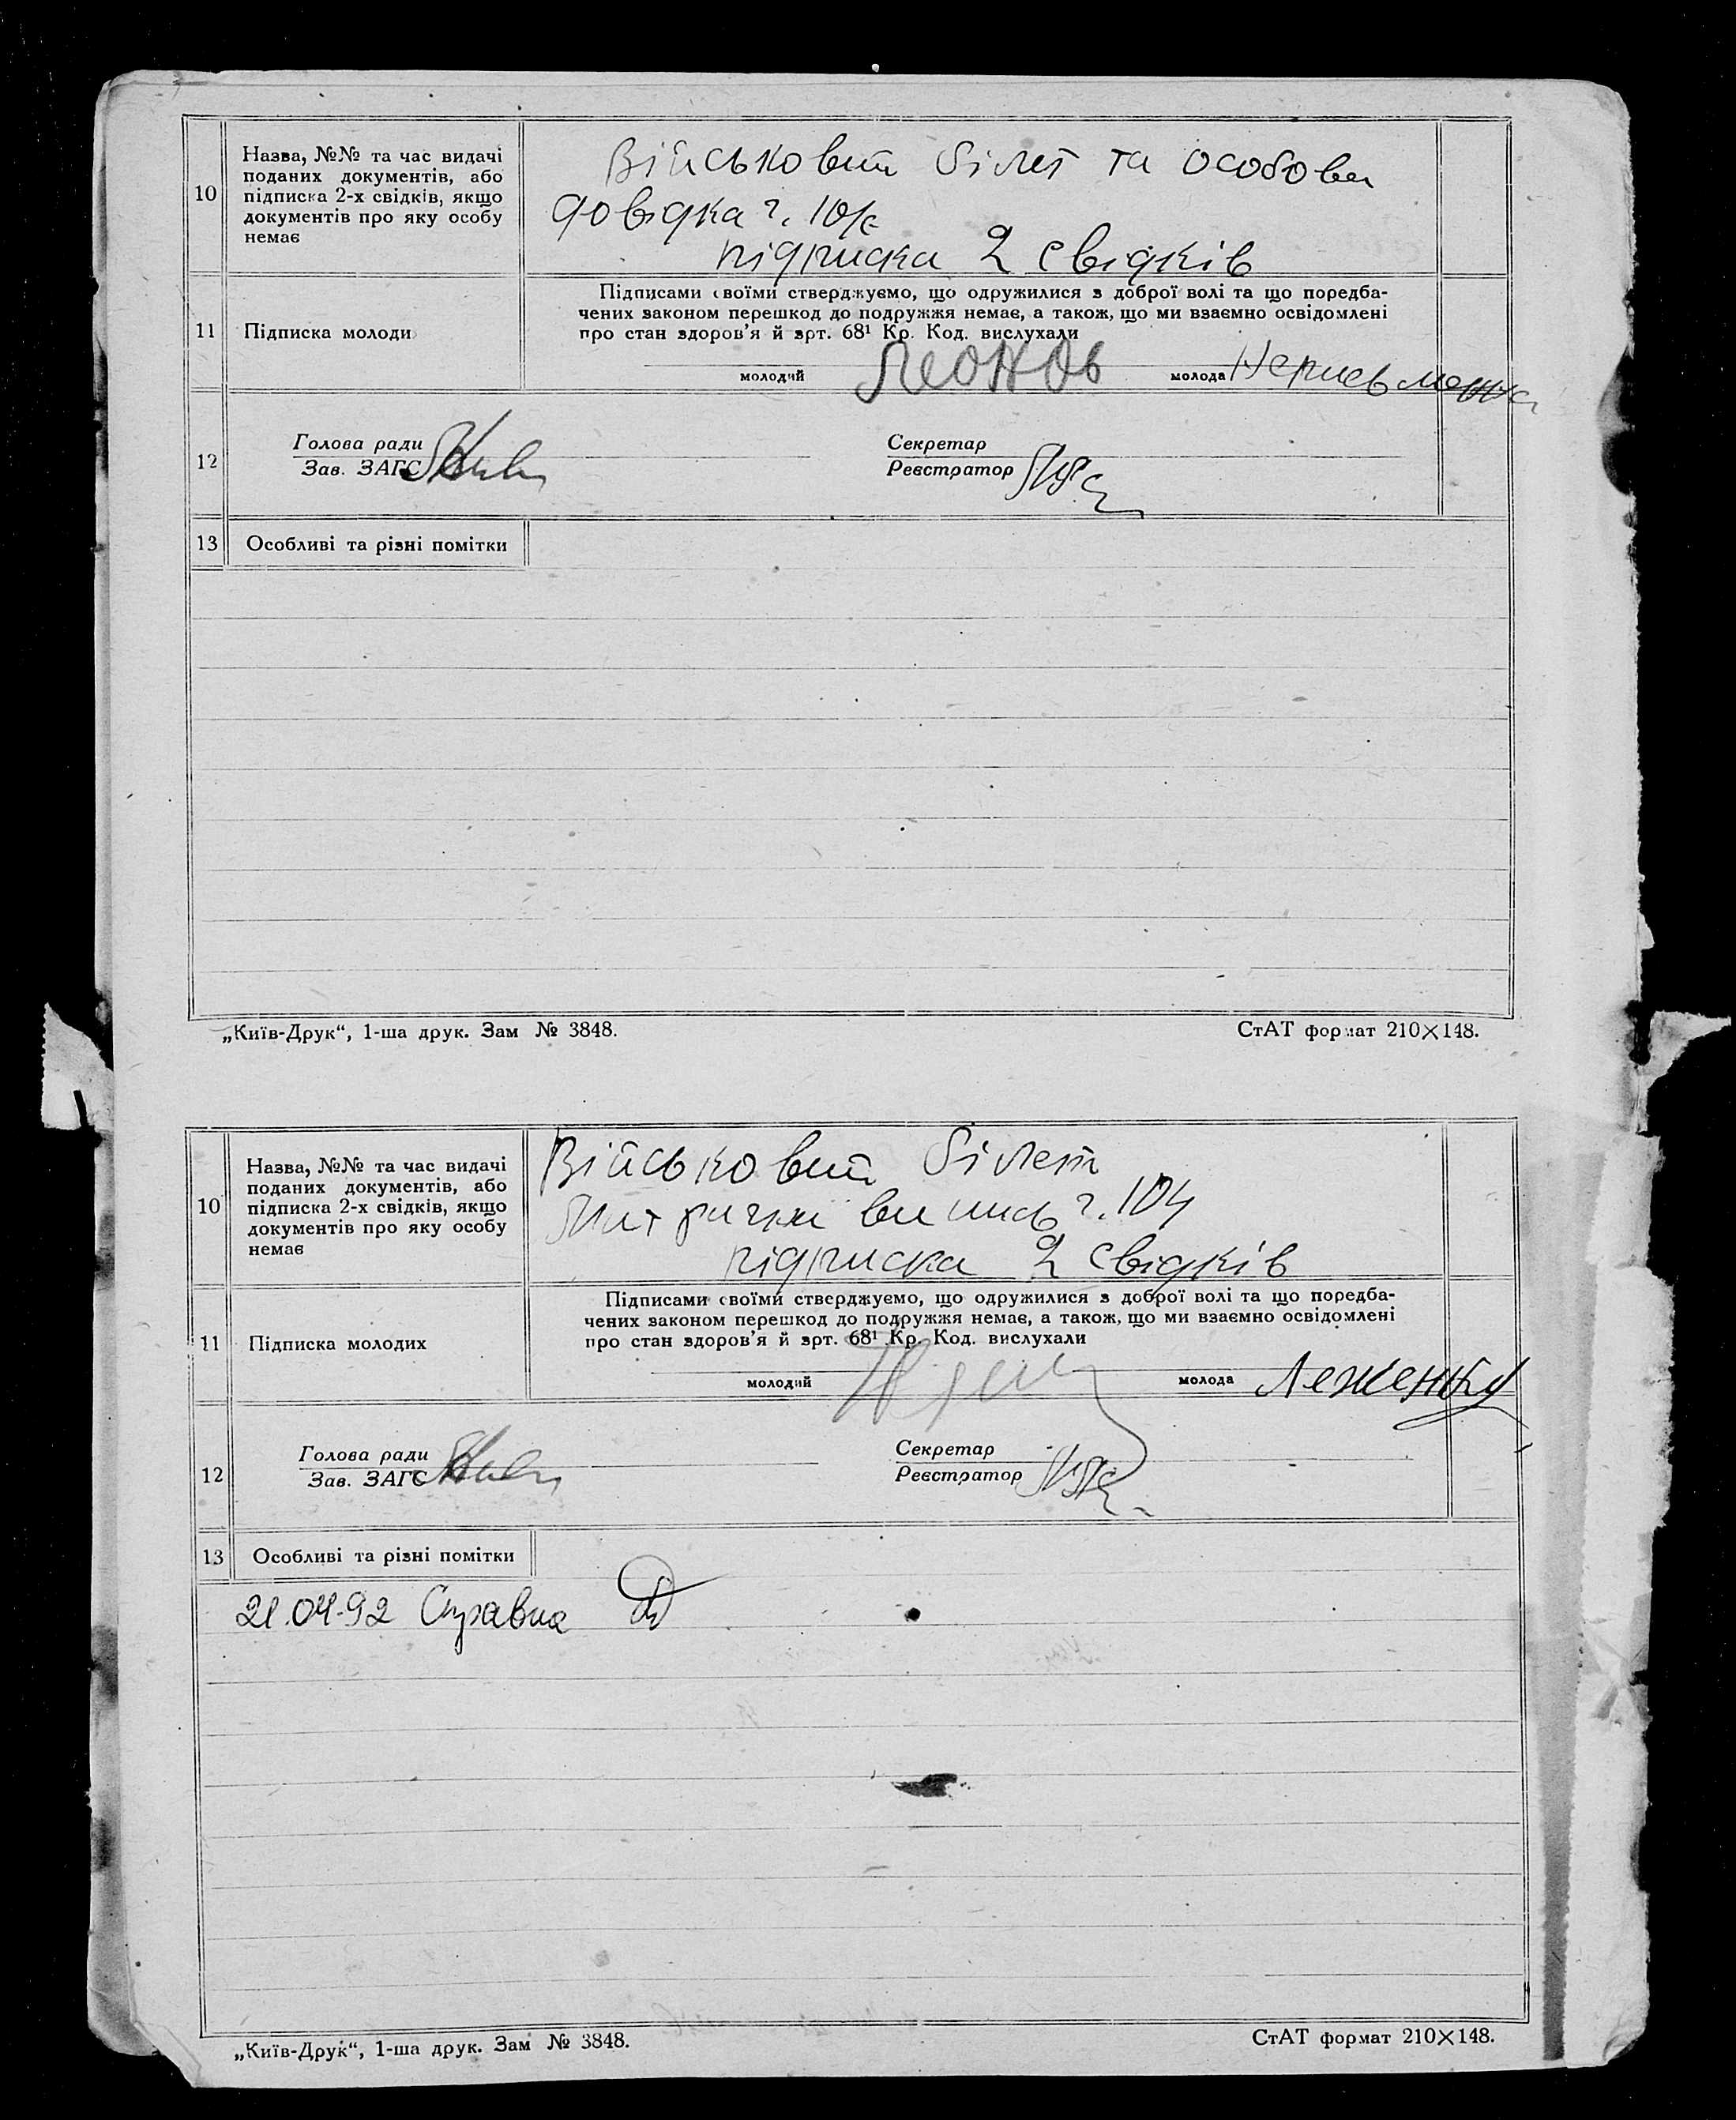 10
Назва, №№ та час видачі
поданих документів, або
підписка 2-х свідків, якщо
документів про яку особу
немає
Військовий білет та особова
довідка ч.
підписка 2 свідків
11
Підписка молоди
Підписами своїми стверджуємо, що одружилися з доброї волі та що поредба-
чених законом перешкод до подружжя немає, а також, що ми взаємно освідомлені
про стан здоров'я й зрт. 68¹ Кр. Код. вислухали
молодий Леонов молода
12
Голова ради
Зав. ЗАГС
Секретар
Реєстратор
13
Особливі та різні помітки
„Київ-Друк“, 1-ша друк. Зам № 3848.
СтАТ формат 210×148.
10
Назва, №№ та час видачі
поданих документів, або
підписка 2-х свідків, якщо
документів про яку особу
немає
Військовий білет
ч. 104
підписка 2 свідків
11
Підписка молодих
Підписами своїми стверджуємо, що одружилися з доброї волі та що поредба-
чених законом перешкод до подружжя немає, а також, що ми взаємно освідомлені
про стан здоров'я й зрт. 68¹ Кр. Код. вислухали
молодий молода
12
Голова ради
Зав. ЗАГС
Секретар
Реєстратор
13
Особливі та різні помітки
21.04.92 Справка
„Київ-Друк“, 1-ша друк. Зам № 3848.
СтАТ формат 210×148.